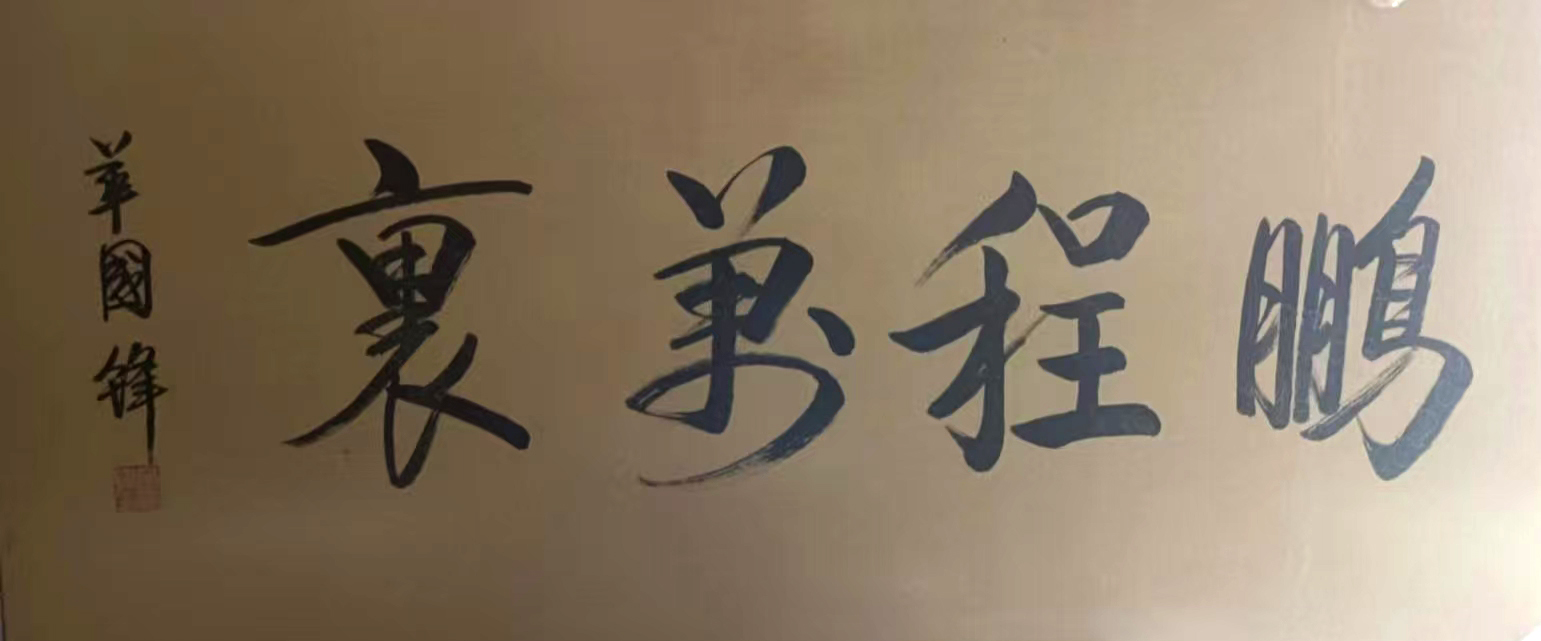 鵬程萬裏
華國鋒